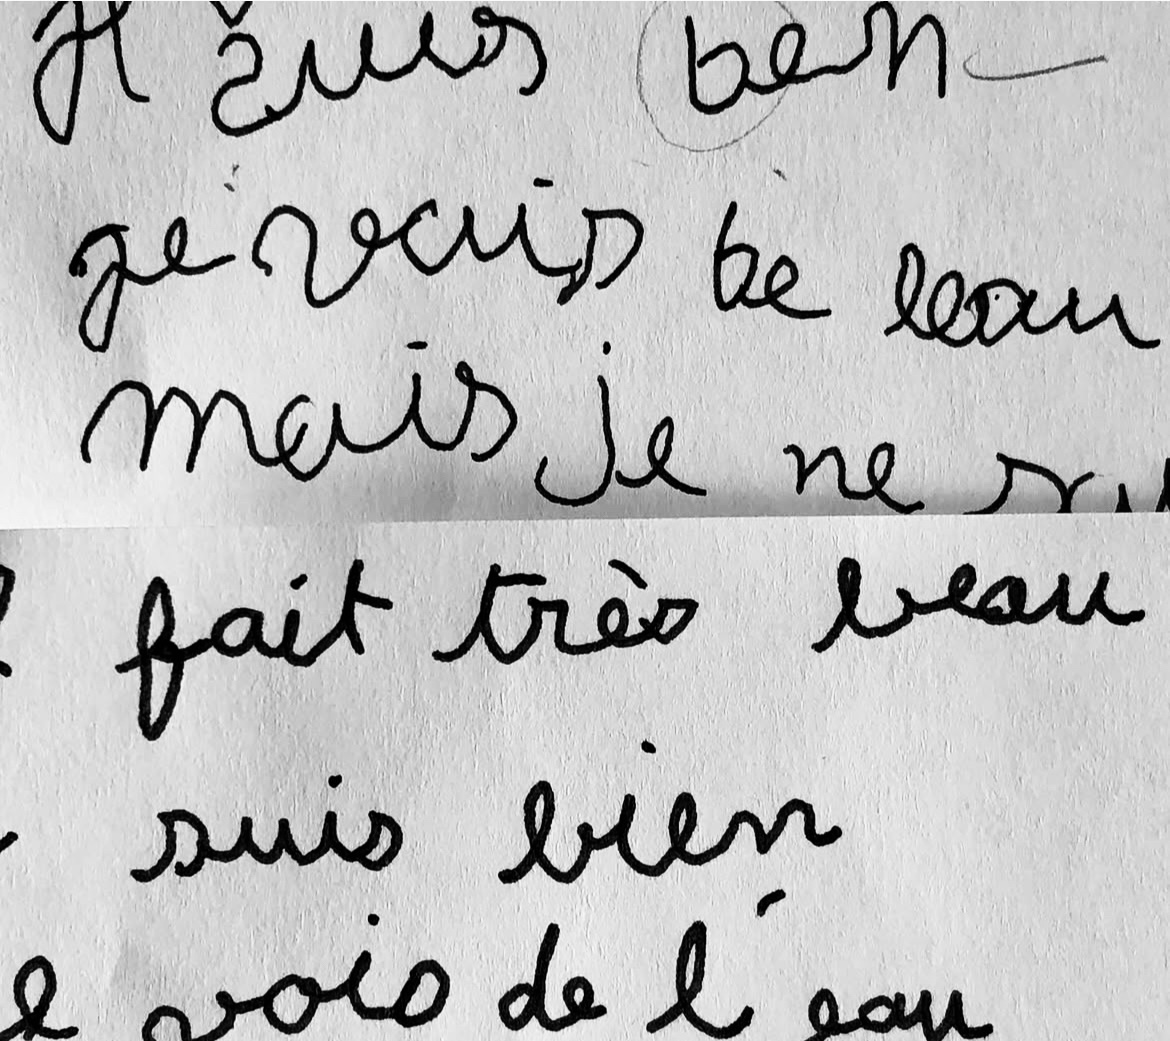 suis ben
je vais be leau
mais je ne
fait très beau
suis bien
vois de l'eau